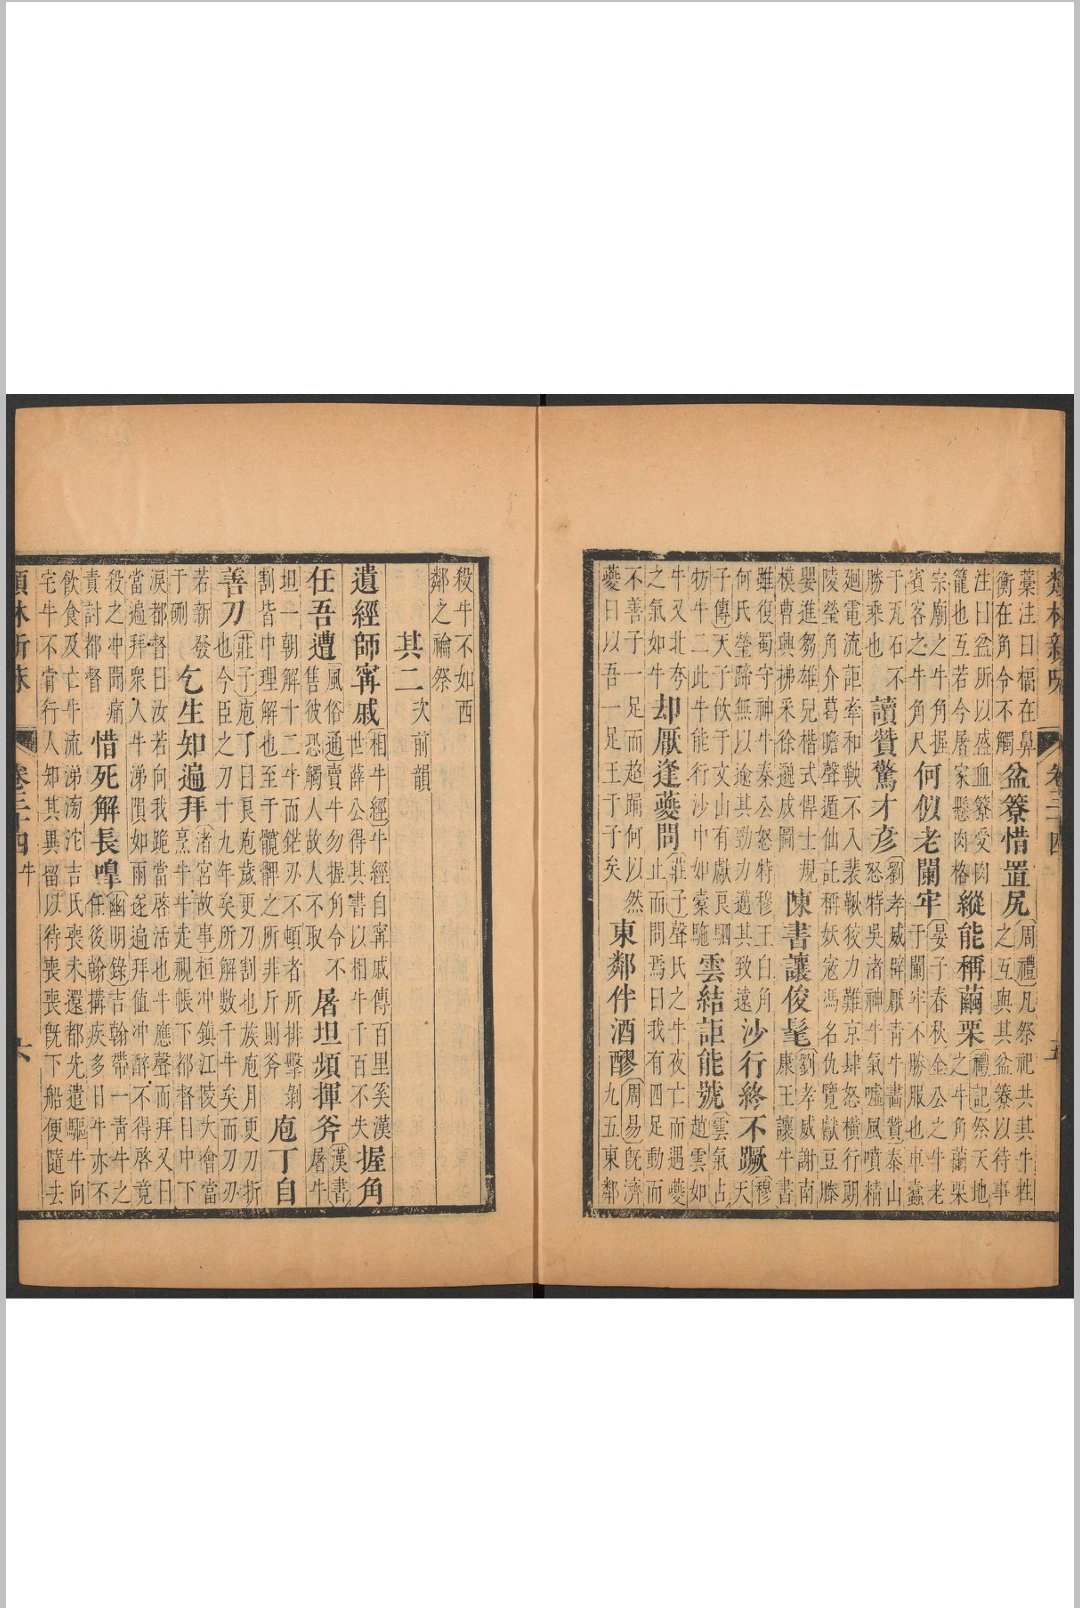 類林新咏 卷三十四 五
藁注曰楅在鼻
衡在角令不觸盆簝惜置尻周禮凡祭祀共其牛牲之互與其盆簝以待事
注曰盆所以盛血簝受肉
籠也互若今屠家懸肉格縱能稱繭栗禮記祭天地之牛角繭栗
宗廟之牛角握
賓客之牛角尺何似老闌牢晏子春秋金公之牛老于闌牢不勝服也車蠹
于瓦石不
勝乘也讀贊驚才彥劉孝威辟厭青牛畫贊泰山怒特吳渚神牛氣噓風噴精
廻電流詎牽和軑不入裴鞦狡力難京肆怒橫行朝
陵瑩角介葛瞻聲遁仙託稱妖寇馮名仇覽獻豆滕
嬰進芻雄兒楷式悍士規
模曹興拂采徐邈成圖陳書讓俊髦劉孝威謝南康王讓牛書
雖復蜀守神牛秦公怒特穆王白角
何氏瑩蹄無以逾其勁力邁其致遠沙行終不蹶穆天
子傳天子攸于文山有獻艮駟
牥牛二此牛能行沙中如橐駞雲結詎能號雲氣占趙雲如
牛又北夸
之氣如牛却厭逢夔問莊子聲氏之牛夜亡而遇夔止而問焉曰我有四足動而
不善子一足而超踊何以然
夔曰以吾一足王于子矣東鄰伴酒醪周易旣濟九五東鄰
殺牛不如西
鄰之禴祭
其二次前韻
遺經師寗戚相牛經牛經自寗戚傳百里奚漢世薛公得其書以相牛千百不失握角
任吾遭風俗通賣牛勿握角令不售彼恐觸人故人不取屠坦頻揮斧漢書屠牛
坦一朝解十二牛而鋩刃不頓者所排擊剝
割皆中理解也至于髖髀之所非斤則斧庖丁自
善刀莊子庖丁曰艮庖歲更刀割也族庖月更刀折也今臣之刀十九年矣所解數千牛矣而刀刃
若新發
于硎乞生知遍拜渚宮故事桓冲鎮江陵大會當烹牛牛走視帳下都督目中下
淚都督曰汝若向我跪當啓活也牛應聲而拜又曰
當遍拜衆人牛涕隕如雨遂遍拜值冲醉不得啓竟
殺之冲聞痛
責討都督惜死解長嘷幽明錄吉翰帶一青牛之任後翰搆疾多日牛亦不
飲食及亡牛流涕滂沱吉氏喪未還都先遣驅牛向
宅牛不肯行人知其異留以待喪喪旣下船便隨去
類林新咏 卷三十四 牛 六